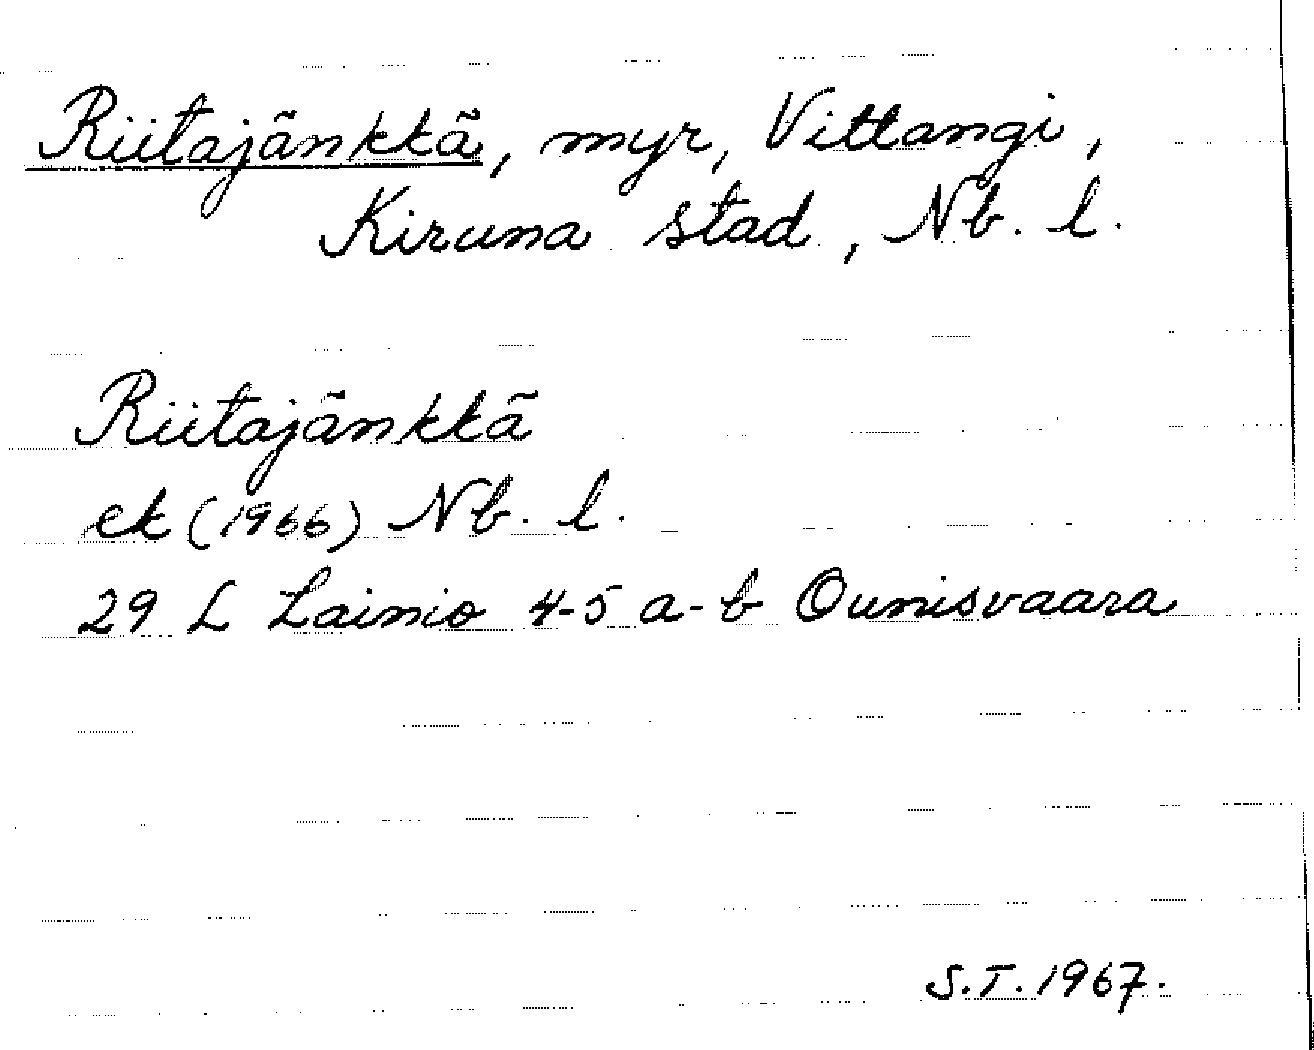 Riitajänkkä, myr, Vittangi,
Kiruna stad, Nb. l.
Riitajänkkä
ek (1966) Nb. l.
29 L Lainio 4-5 a-b Ounisvaara
S.T. 1967.